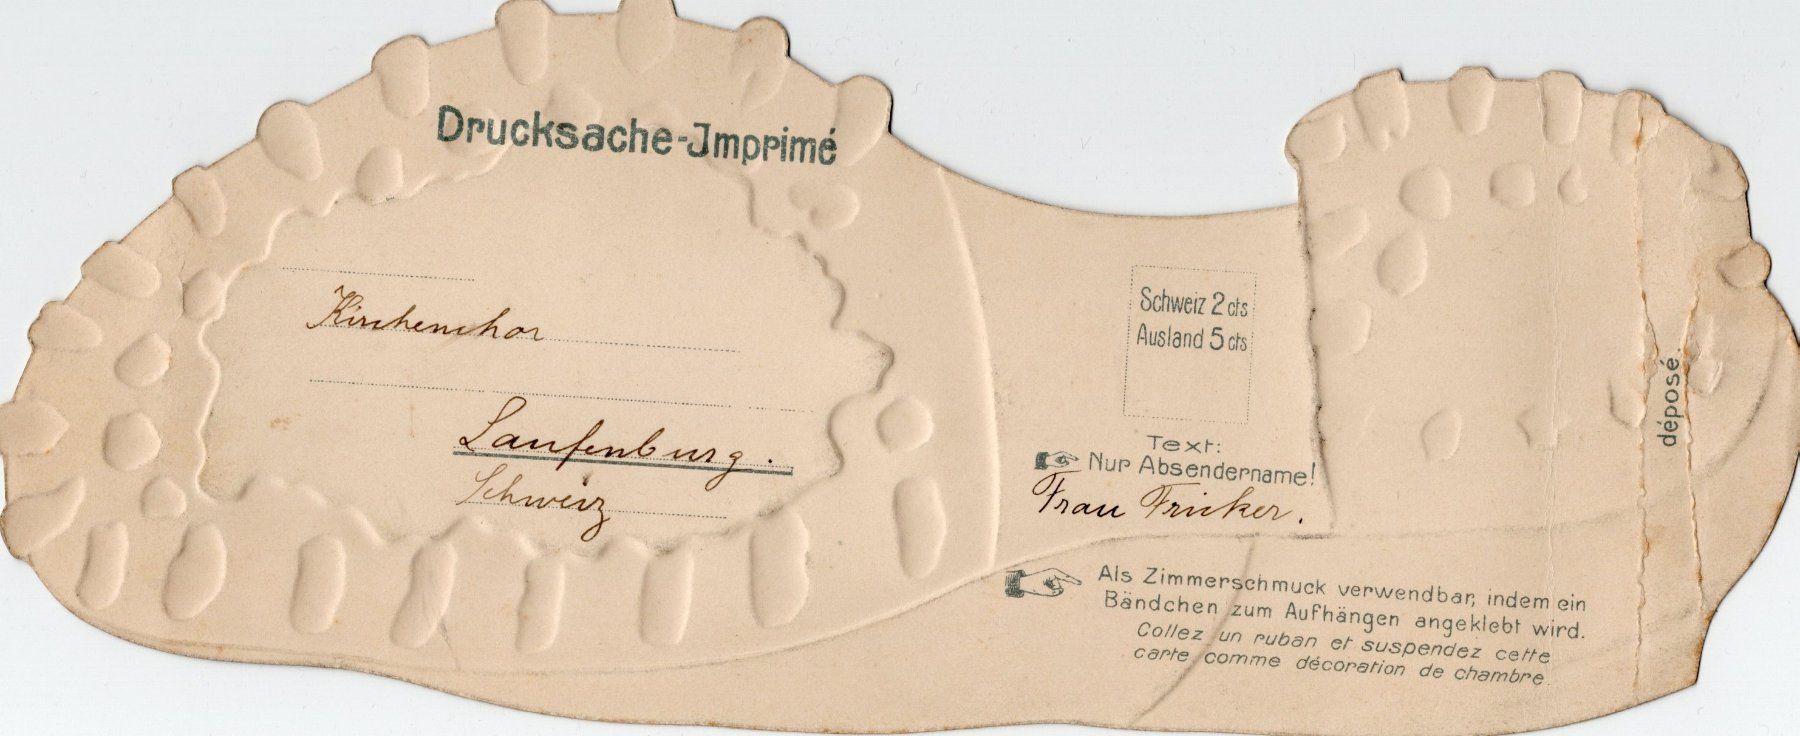 Drucksache-Imprimé
Kirchenchor
Laufenburg.
Schweiz
Schweiz 2 cts
Ausland 5 cts
Text:
Nur Absendername!
Frau Fricker.
Als Zimmerschmuck verwendbar, indem ein
Bändchen zum Aufhängen angeklebt wird.
Collez un ruban et suspendez cette
carte comme décoration de chambre.
déposé.